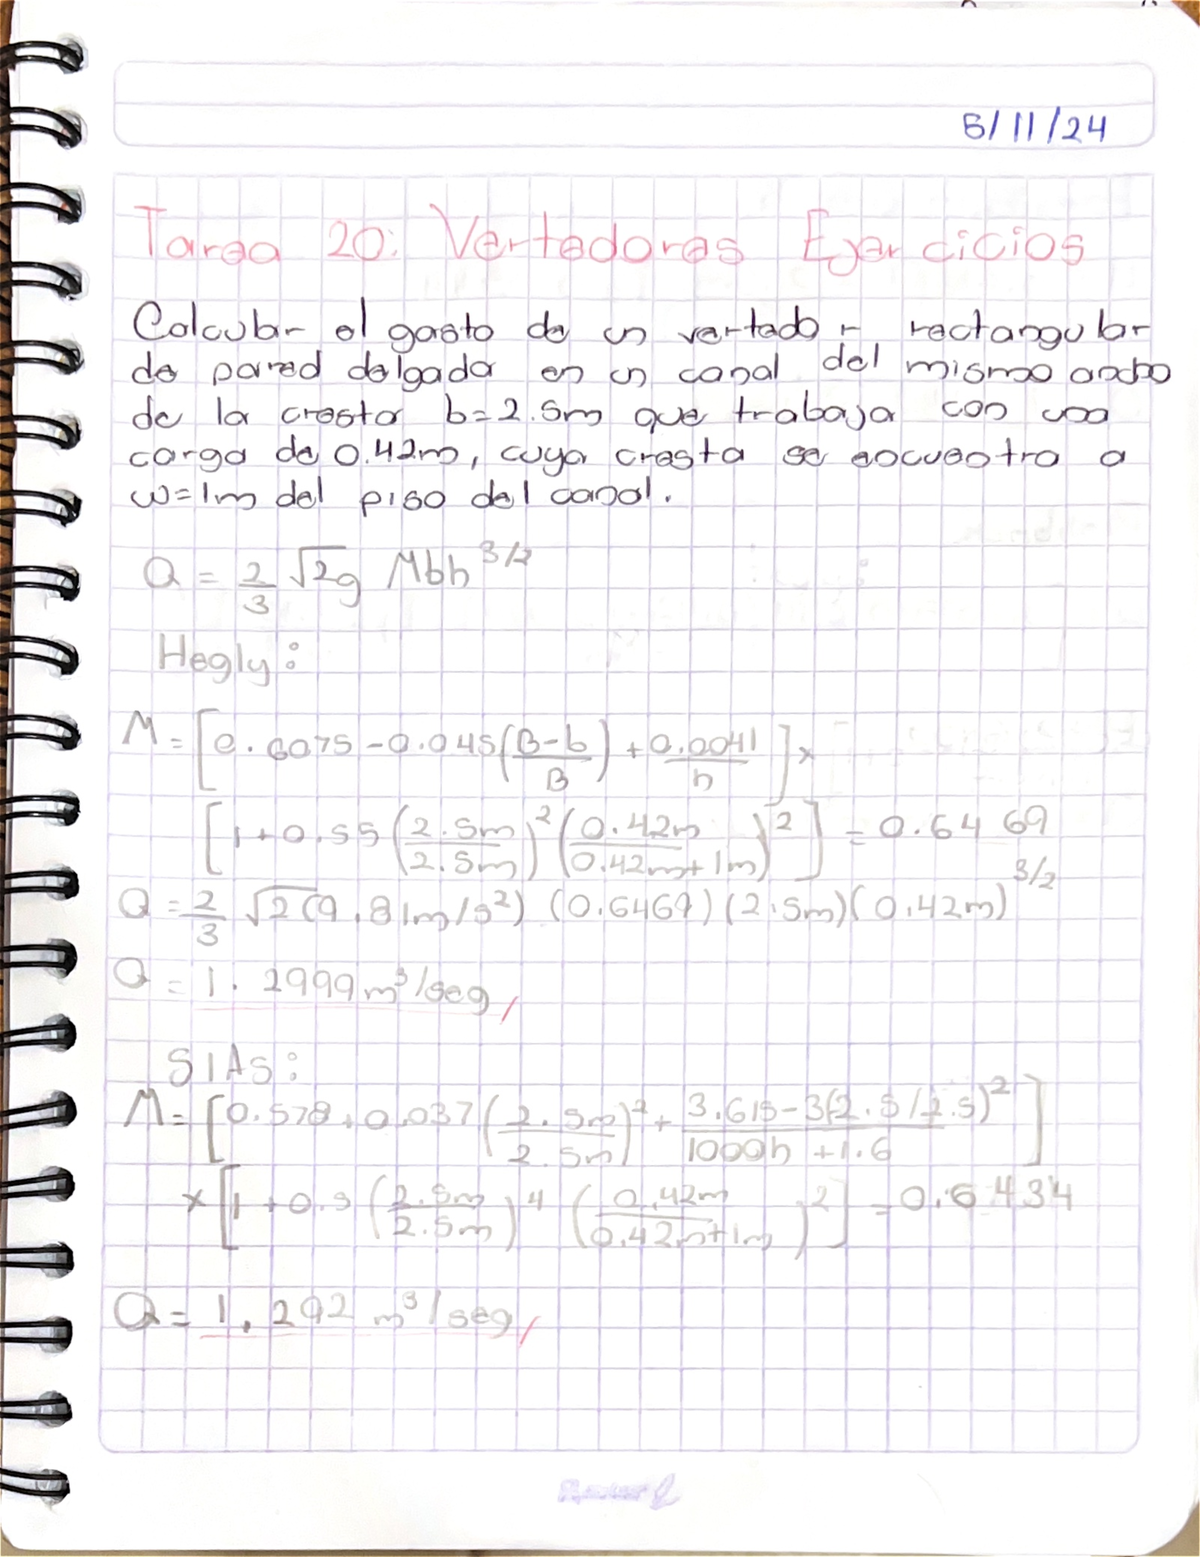 5/11/24
Tarea 20: Vertedores Ejercicios
Calcular el gasto de un vertedor rectangular
de pared delgada en un canal del mismo ancho
de la cresta b=2.5m que trabaja con una
carga de 0.42m, cuya cresta se encuentra a
w=1m del piso del canal.
Q = 2/3 √2g Mbh^3/2
Hegly:
M = [0.6075 - 0.045((B-b)/B) + 0.0041/h] x
[1+0.55(2.5m/2.5m)^2 (0.42m/(0.42m+1m))^2] = 0.6469
Q = 2/3 √2(9.81m/s²) (0.6469)(2.5m)(0.42m)^3/2
Q = 1.2999 m³/seg
SIAS:
M = [0.578 + 0.037(2.5m/2.5m)^2 + (3.615-3(2.5/2.5)^2)/(1000h+1.6)]
x [1+0.5(2.5m/2.5m)^4 (0.42m/(0.42m+1m))^2] = 0.6434
Q = 1.292 m³/seg